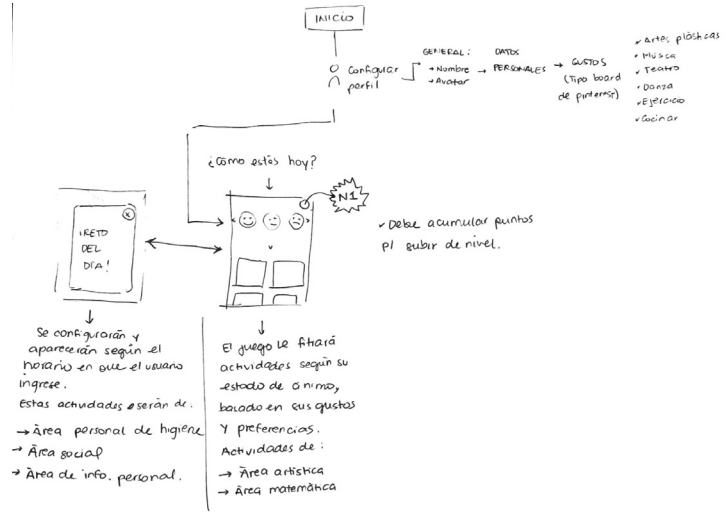 INICIO
Configurar
perfil
GENERAL:
→ Nombre
→ Avatar
→ DATOS
PERSONALES
→ GUSTOS
(Tipo board
de pinterest)
✓ Artes plásticas
✓ Música
✓ Teatro
✓ Danza
✓ Ejercicio
✓ Cocinar
¿Cómo estás hoy?
N1
✓ Debe acumular puntos
p/ subir de nivel.
¡RETO
DEL
DÍA!
x
Se configurarán y
aparecerán según el
horario en que el usuario
ingrese.
Estas actividades serán de:
→ Área personal de higiene
→ Área social
→ Área de info. personal.
El juego le filtrará
actividades según su
estado de ánimo,
basado en sus gustos
y preferencias.
Actividades de:
→ Área artística
→ Área matemática